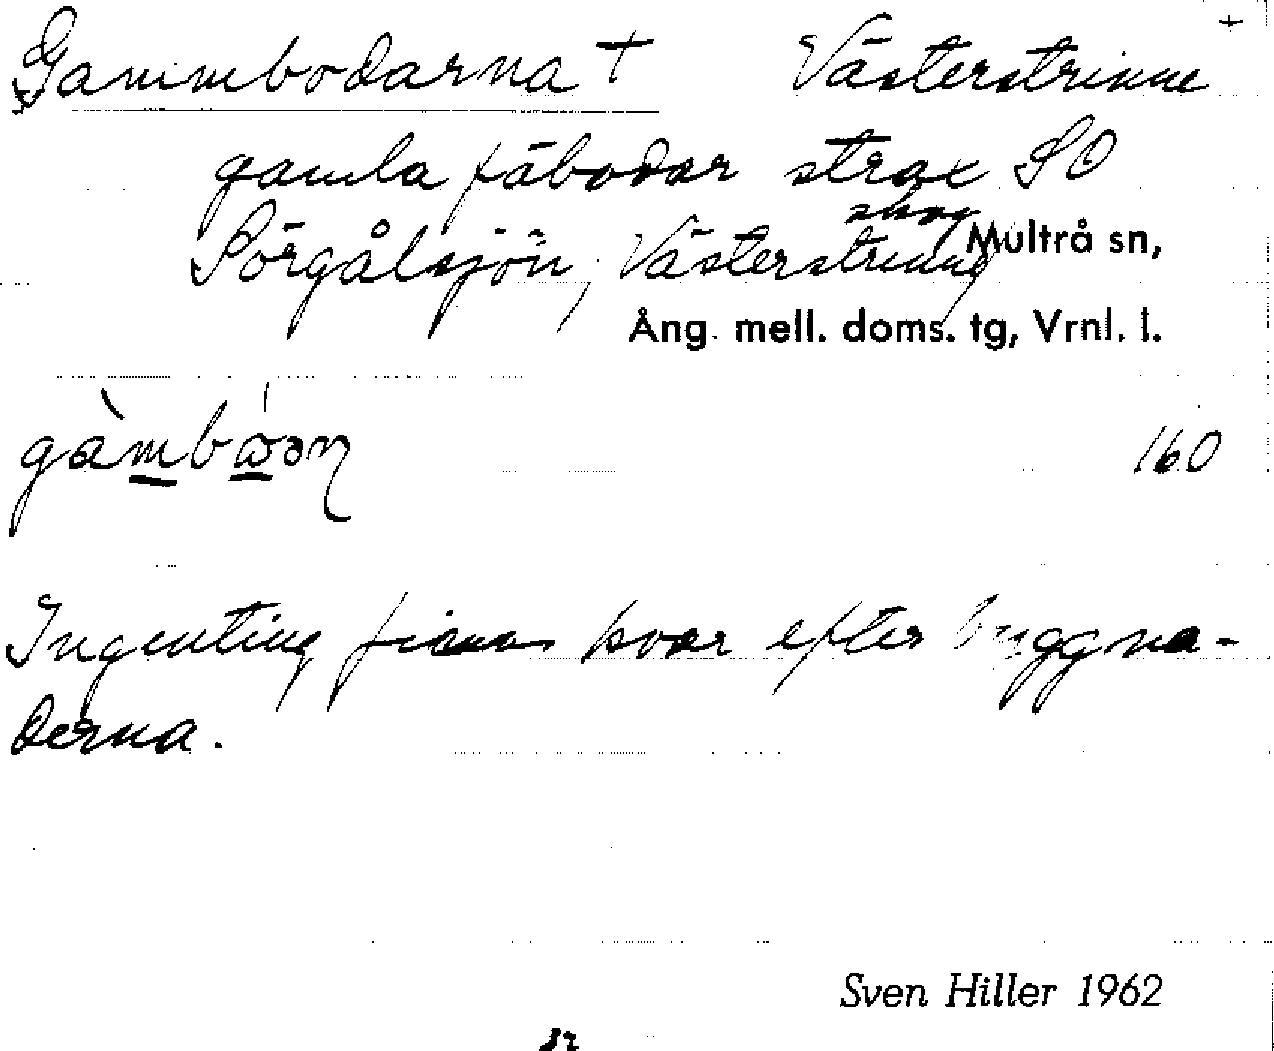 +
Gammbodarna + Västerstrinne
gamla fäbodar strax SO
skog
Sörgålsjön, Västerstrinne Multrå sn,
Ång. mell. doms. tg, Vrnl. l.
160
Ingenting finns kvar efter byggna-
derna.
Sven Hiller 1962